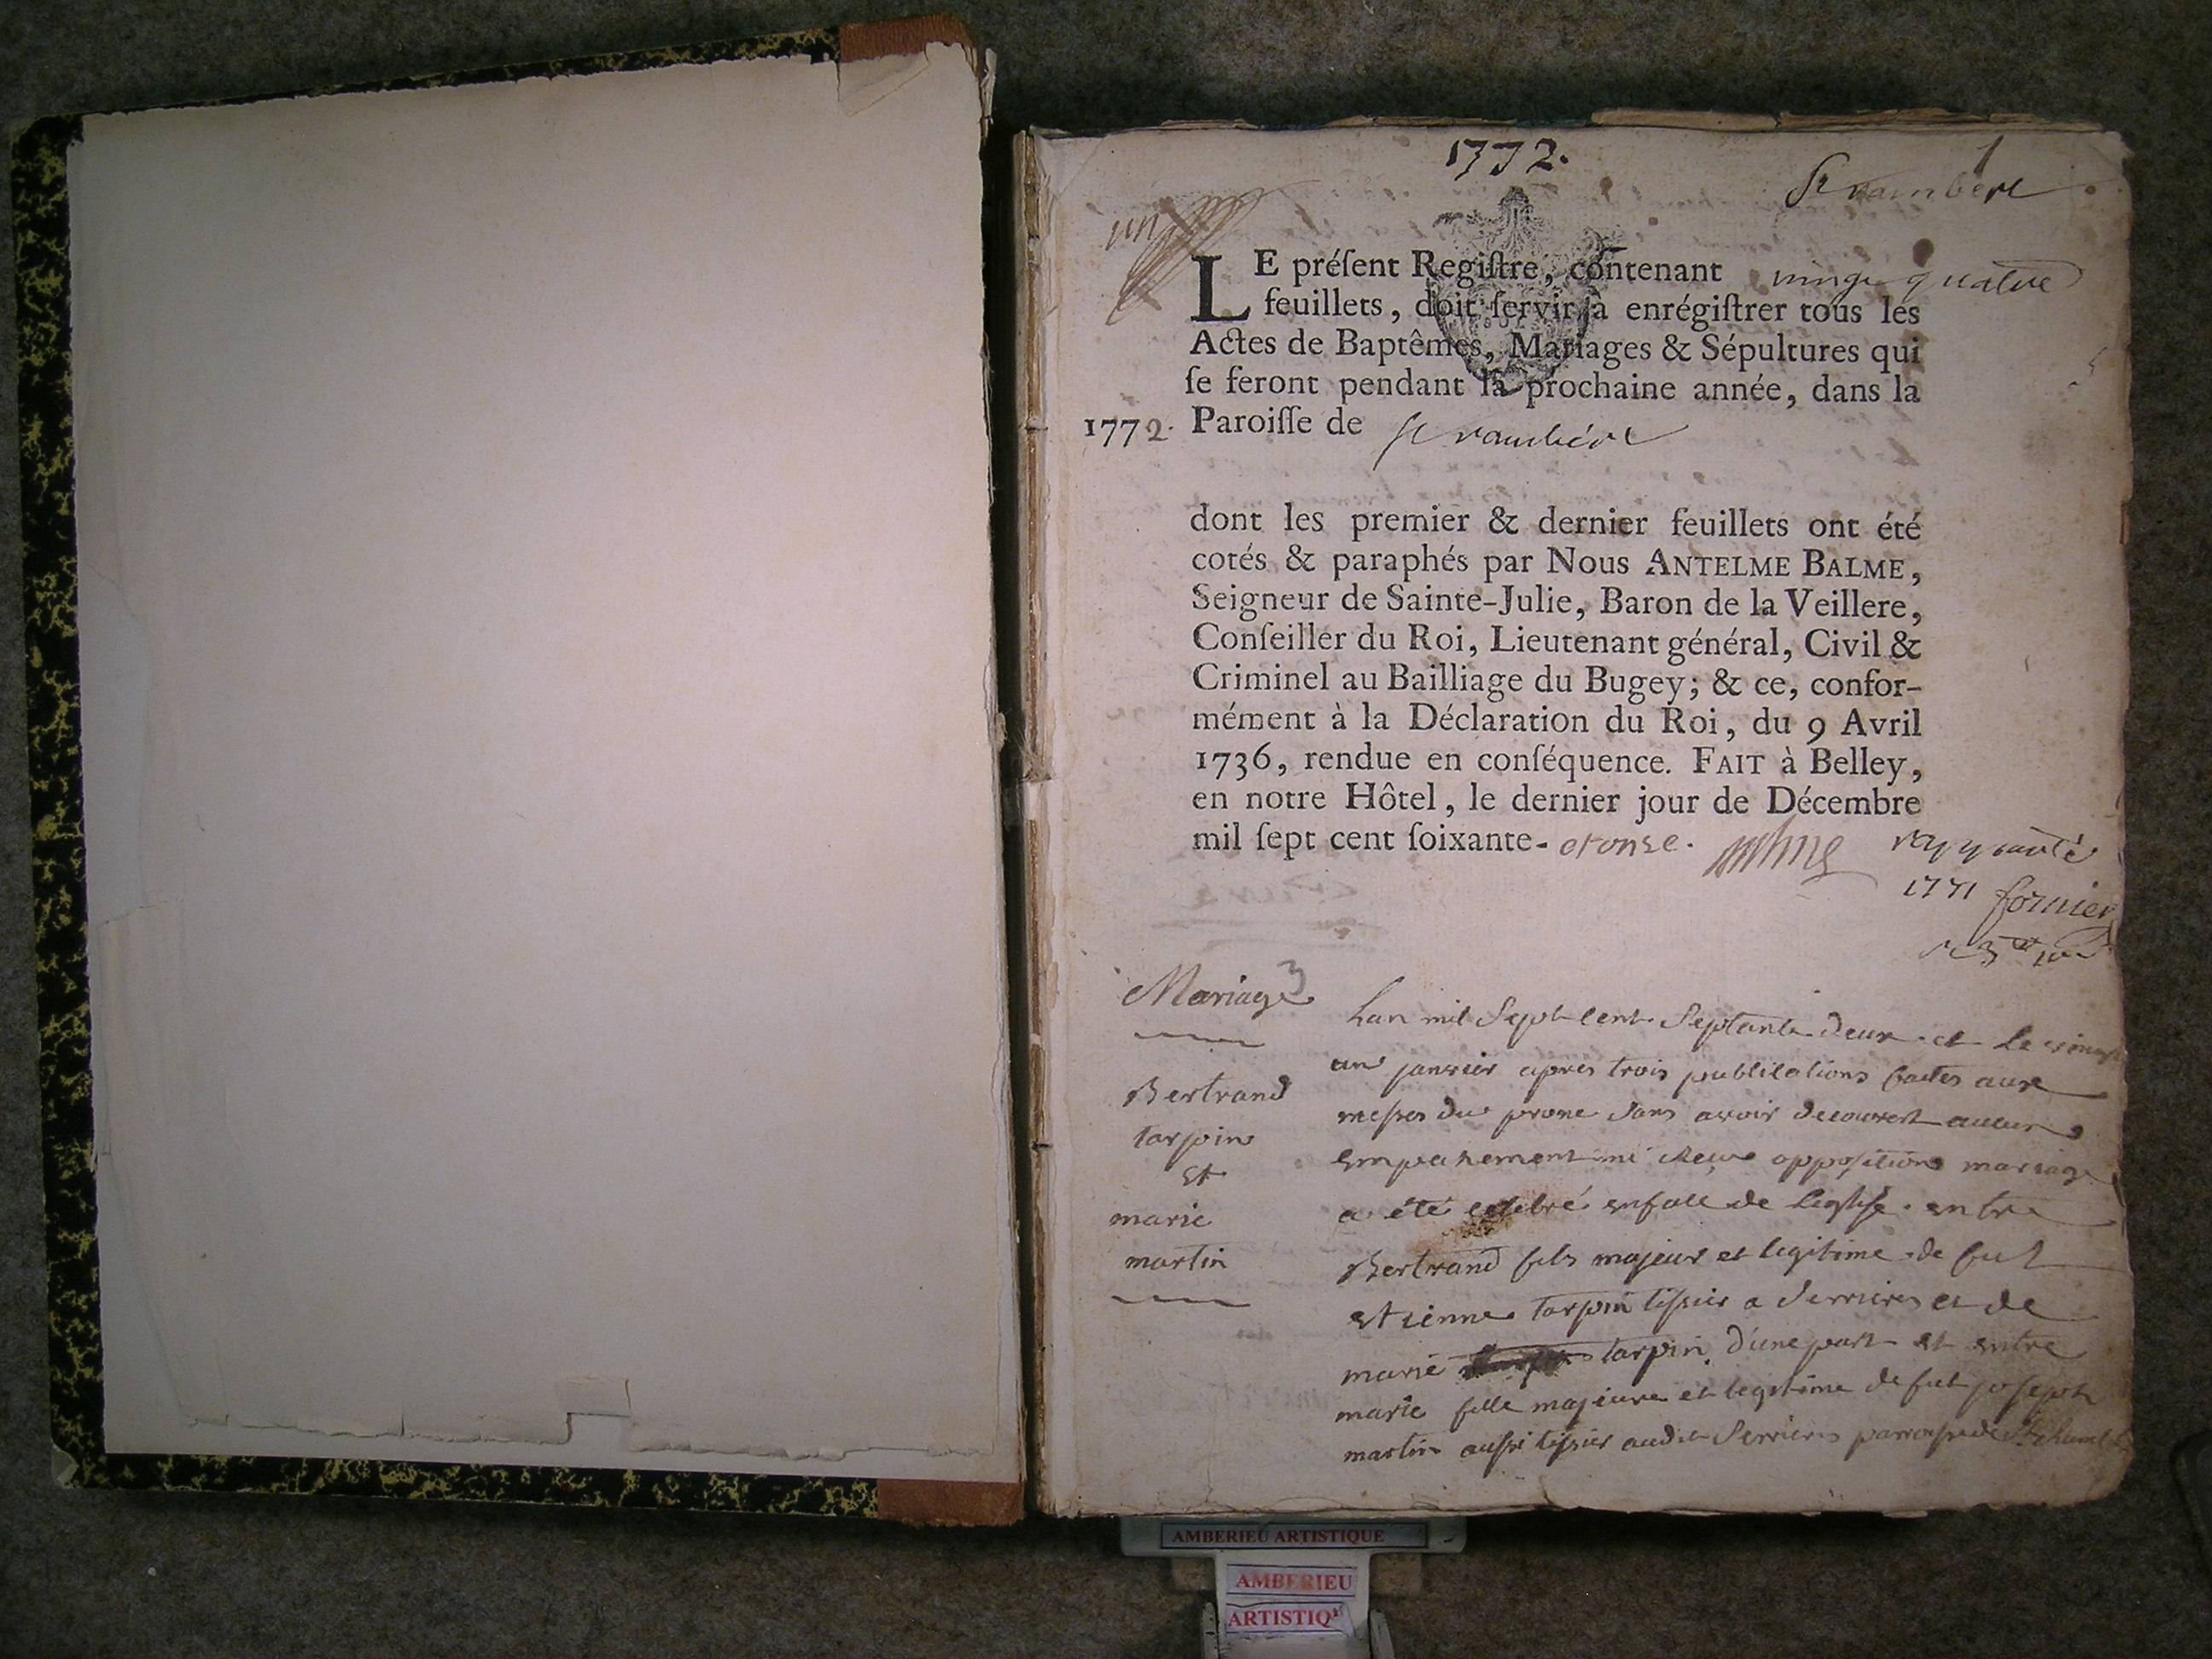 1772.
1
St rambert
un
LE préſent Regiſtre, contenant vingt quatre
feuillets, doit ſervir à enrégiſtrer tous les
Actes de Baptêmes, Mariages & Sépultures qui
ſe feront pendant la prochaine année, dans la
1772. Paroiſſe de St rambert
dont les premier & dernier feuillets ont été
cotés & paraphés par Nous ANTELME BALME,
Seigneur de Sainte-Julie, Baron de la Veillere,
Conſeiller du Roi, Lieutenant général, Civil &
Criminel au Bailliage du Bugey; & ce, confor-
mément à la Déclaration du Roi, du 9 Avril
1736, rendue en conſéquence. FAIT à Belley,
en notre Hôtel, le dernier jour de Décembre
mil ſept cent ſoixante- et onze.
1771
Mariage 3
Bertrand
tarpin
Et
marie
martin
Lan mil Sept cent Septante deux et Le vingt
un janvier apres trois publications faites aux
messes du prone Sans avoir decouvert aucun
Empechement ni opposition mariage
a été celebré enface de Leglise entre
Bertrand fils majeur et legitime de fut
Etienne tarpin tissier a Serrieres et de
marie tarpin d'une part et entre
marie fille majeure et legitime de fut joseph
martin aussi tissier audit Serrieres paroisse de St Rambert
AMBERIEU ARTISTIQUE
AMBERIEU
ARTISTIQ